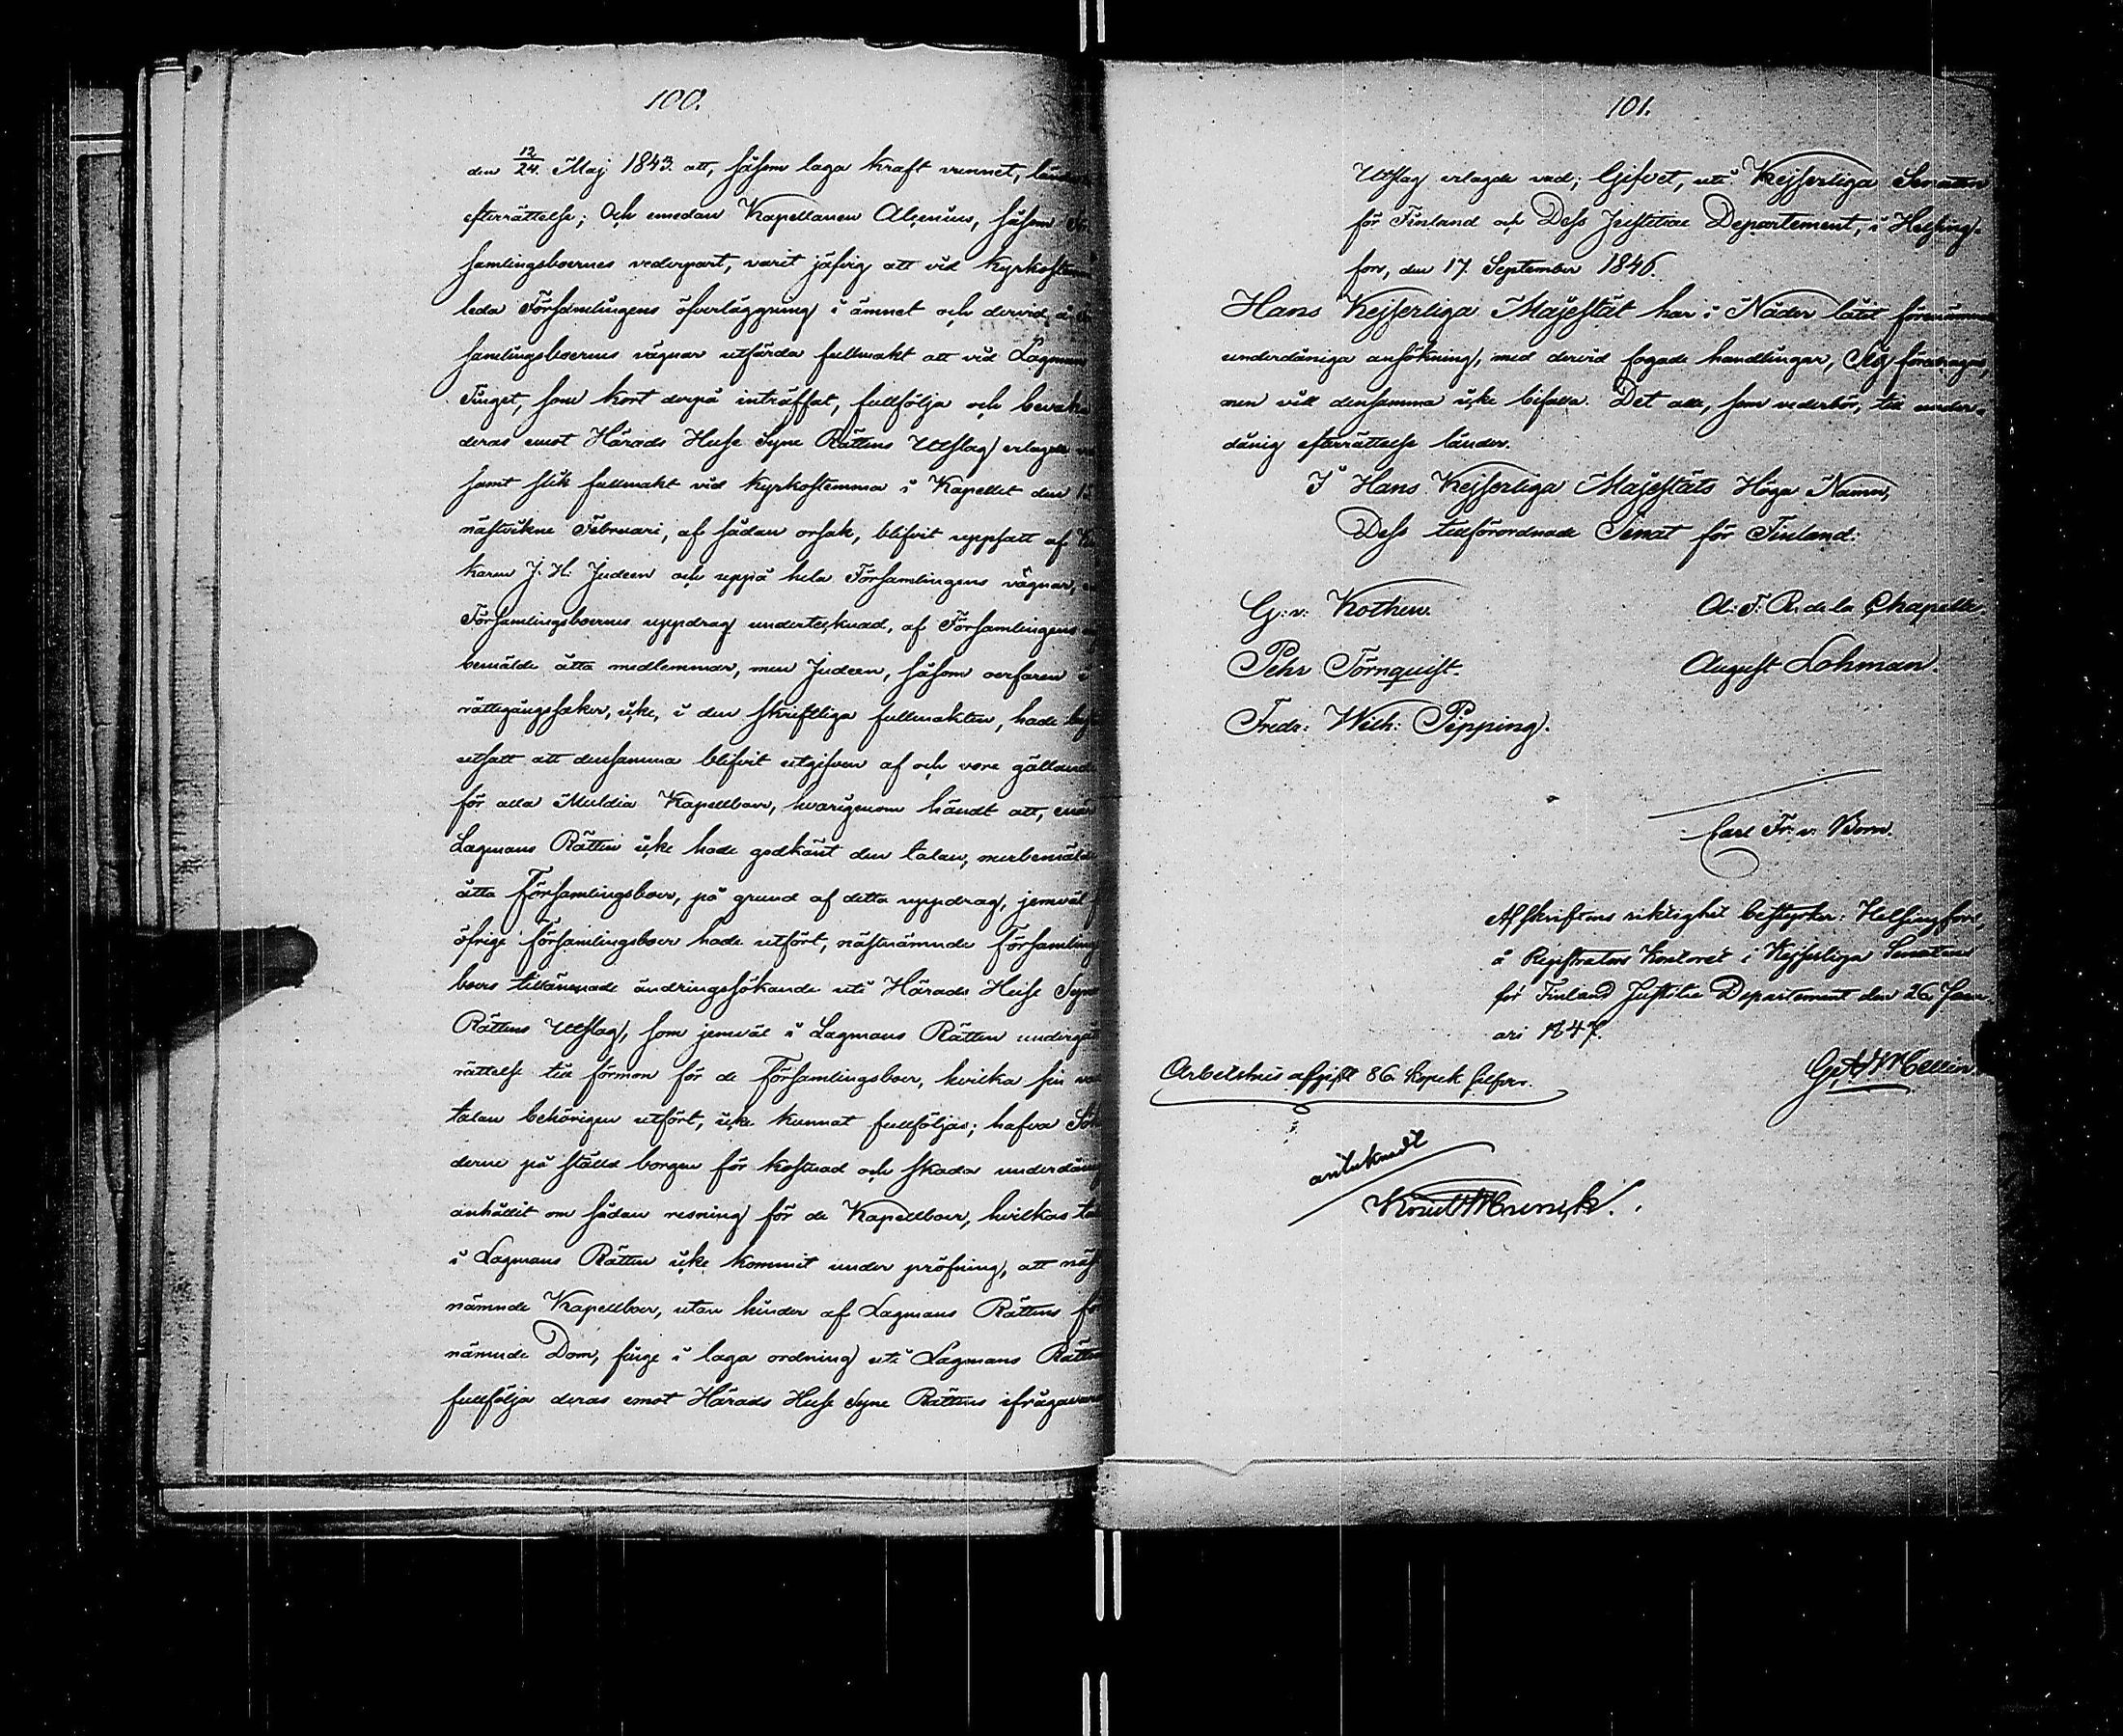 100.
den 12/24. Maj 1843. att, såsom laga kraft vunnet,
efterrättelse; Och emedan Kapellanen Alcenius, såsom
samlingsboernes vederpart, varit jäfvig att vid
leda Församlingens öfverläggning i ämnet och dervid,
samlingsboernes vägnar utfärda fullmakt att vid Lagmans
Tinget, som kort derpå inträffat, fullfölja och bevaka
deras emot Härads Huse Syne Rättens Utslag erlagda
samt slik fullmakt vid Kyrkostemma i Kapellet den
nästvikne Februari, af sådan orsak, blifvit uppsatt af
karen J. H. Judeen och uppå hela Församlingens vägnar,
Församlingsboernes uppdrag undertecknad, af Församlingens
bemälde åtta medlemmar, men Judeen, såsom oerfaren i
rättegångssaker, icke, i den skriftliga fullmakten, hade
utsatt att densamma blifvit utgifven af och vore gällande
för alla Muldia Kapellboer, hvarigenom händt att, enär
Lagmans Rätten icke hade godkänt den talan, merbemälde
åtta Församlingsboer, på grund af detta uppdrag, jemväl
öfrige församlingsboer hade utfört, nästnämnde Församlings
boers tillämnade ändringssökande uti Härads Huse Syne
Rättens Utslag, som jemväl i Lagmans Rätten undergått
rättelse till förmon för de Församlingsboer, hvilka sin
talan behörigen utfört, icke kunnat fullföljas; hafva
derne på ställd borgen för kostnad och skada underdånigst
anhållit om sådan resning för de Kapellboer, hvilkas
i Lagmans Rätten icke kommit under pröfning, att näst
nämnde Kapellboer, utan hinder af Lagmans Rättens
nämnde Dom, finge i laga ordning uti Lagmans Rätten
fullfölja deras emot Härads Huse Syne Rättens ifrågavarande
101.
Utslag erlagde vad; Gifvet, uti Kejserliga Senaten
för Finland och Dess Justitiae Departement, i Helsing-
fors, den 17. September 1846.
Hans Kejserliga Majestät har i Nåder låtit förenämnde
underdåniga ansökning, med dervid fogade handlingar, Sig föredragas,
men vill densamma icke bifalla. Det alle, som vederbör, till under-
dånig efterrättelse länder.
I Hans Kejserliga Majestäts Höga Namn,
Dess tillförordnade Senat för Finland:
G: v: Kothen. A: F: R. de la Chapelle.
Pehr Törnquist. August Lohman.
Fredr: Wilh: Pipping.
Carl Fr: v: Born.
Afskriftens riktighet bestyrker: Helsingfors,
å Registrators Kontoret i Kejserliga Senatens
för Finland Justitie Departement den 26 Janu-
ari 1847.
Arbetshus afgift 86. kopek silfver.